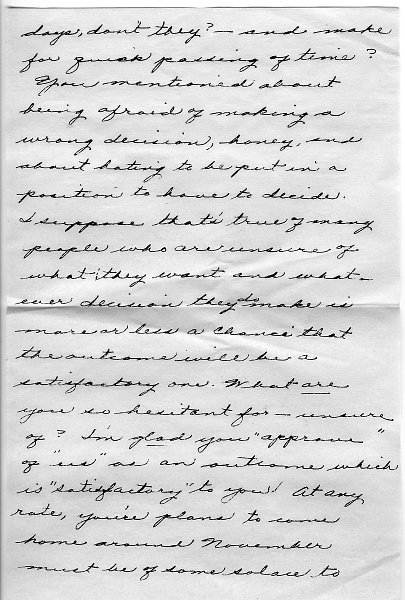 days, don't they? — and make
for quick passing of time?
You mentioned about
being afraid of making a
wrong decision, honey, and
about hating to be put in a
position to have to decide.
I suppose that's true of many
people who are unsure of
what they want and what-
ever decision they do make is
more or less a chance that
the outcome will be a
satisfactory one. What are
you so hesitant for — unsure
of? I'm glad you "approve"
of "us" as an outcome which
is "satisfactory" to you! At any
rate, you're plans to come
home around November
must be of some solace to